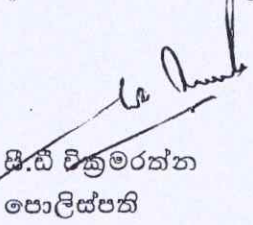 සී.ඩී වික්‍රමරත්න
පොලිස්පති